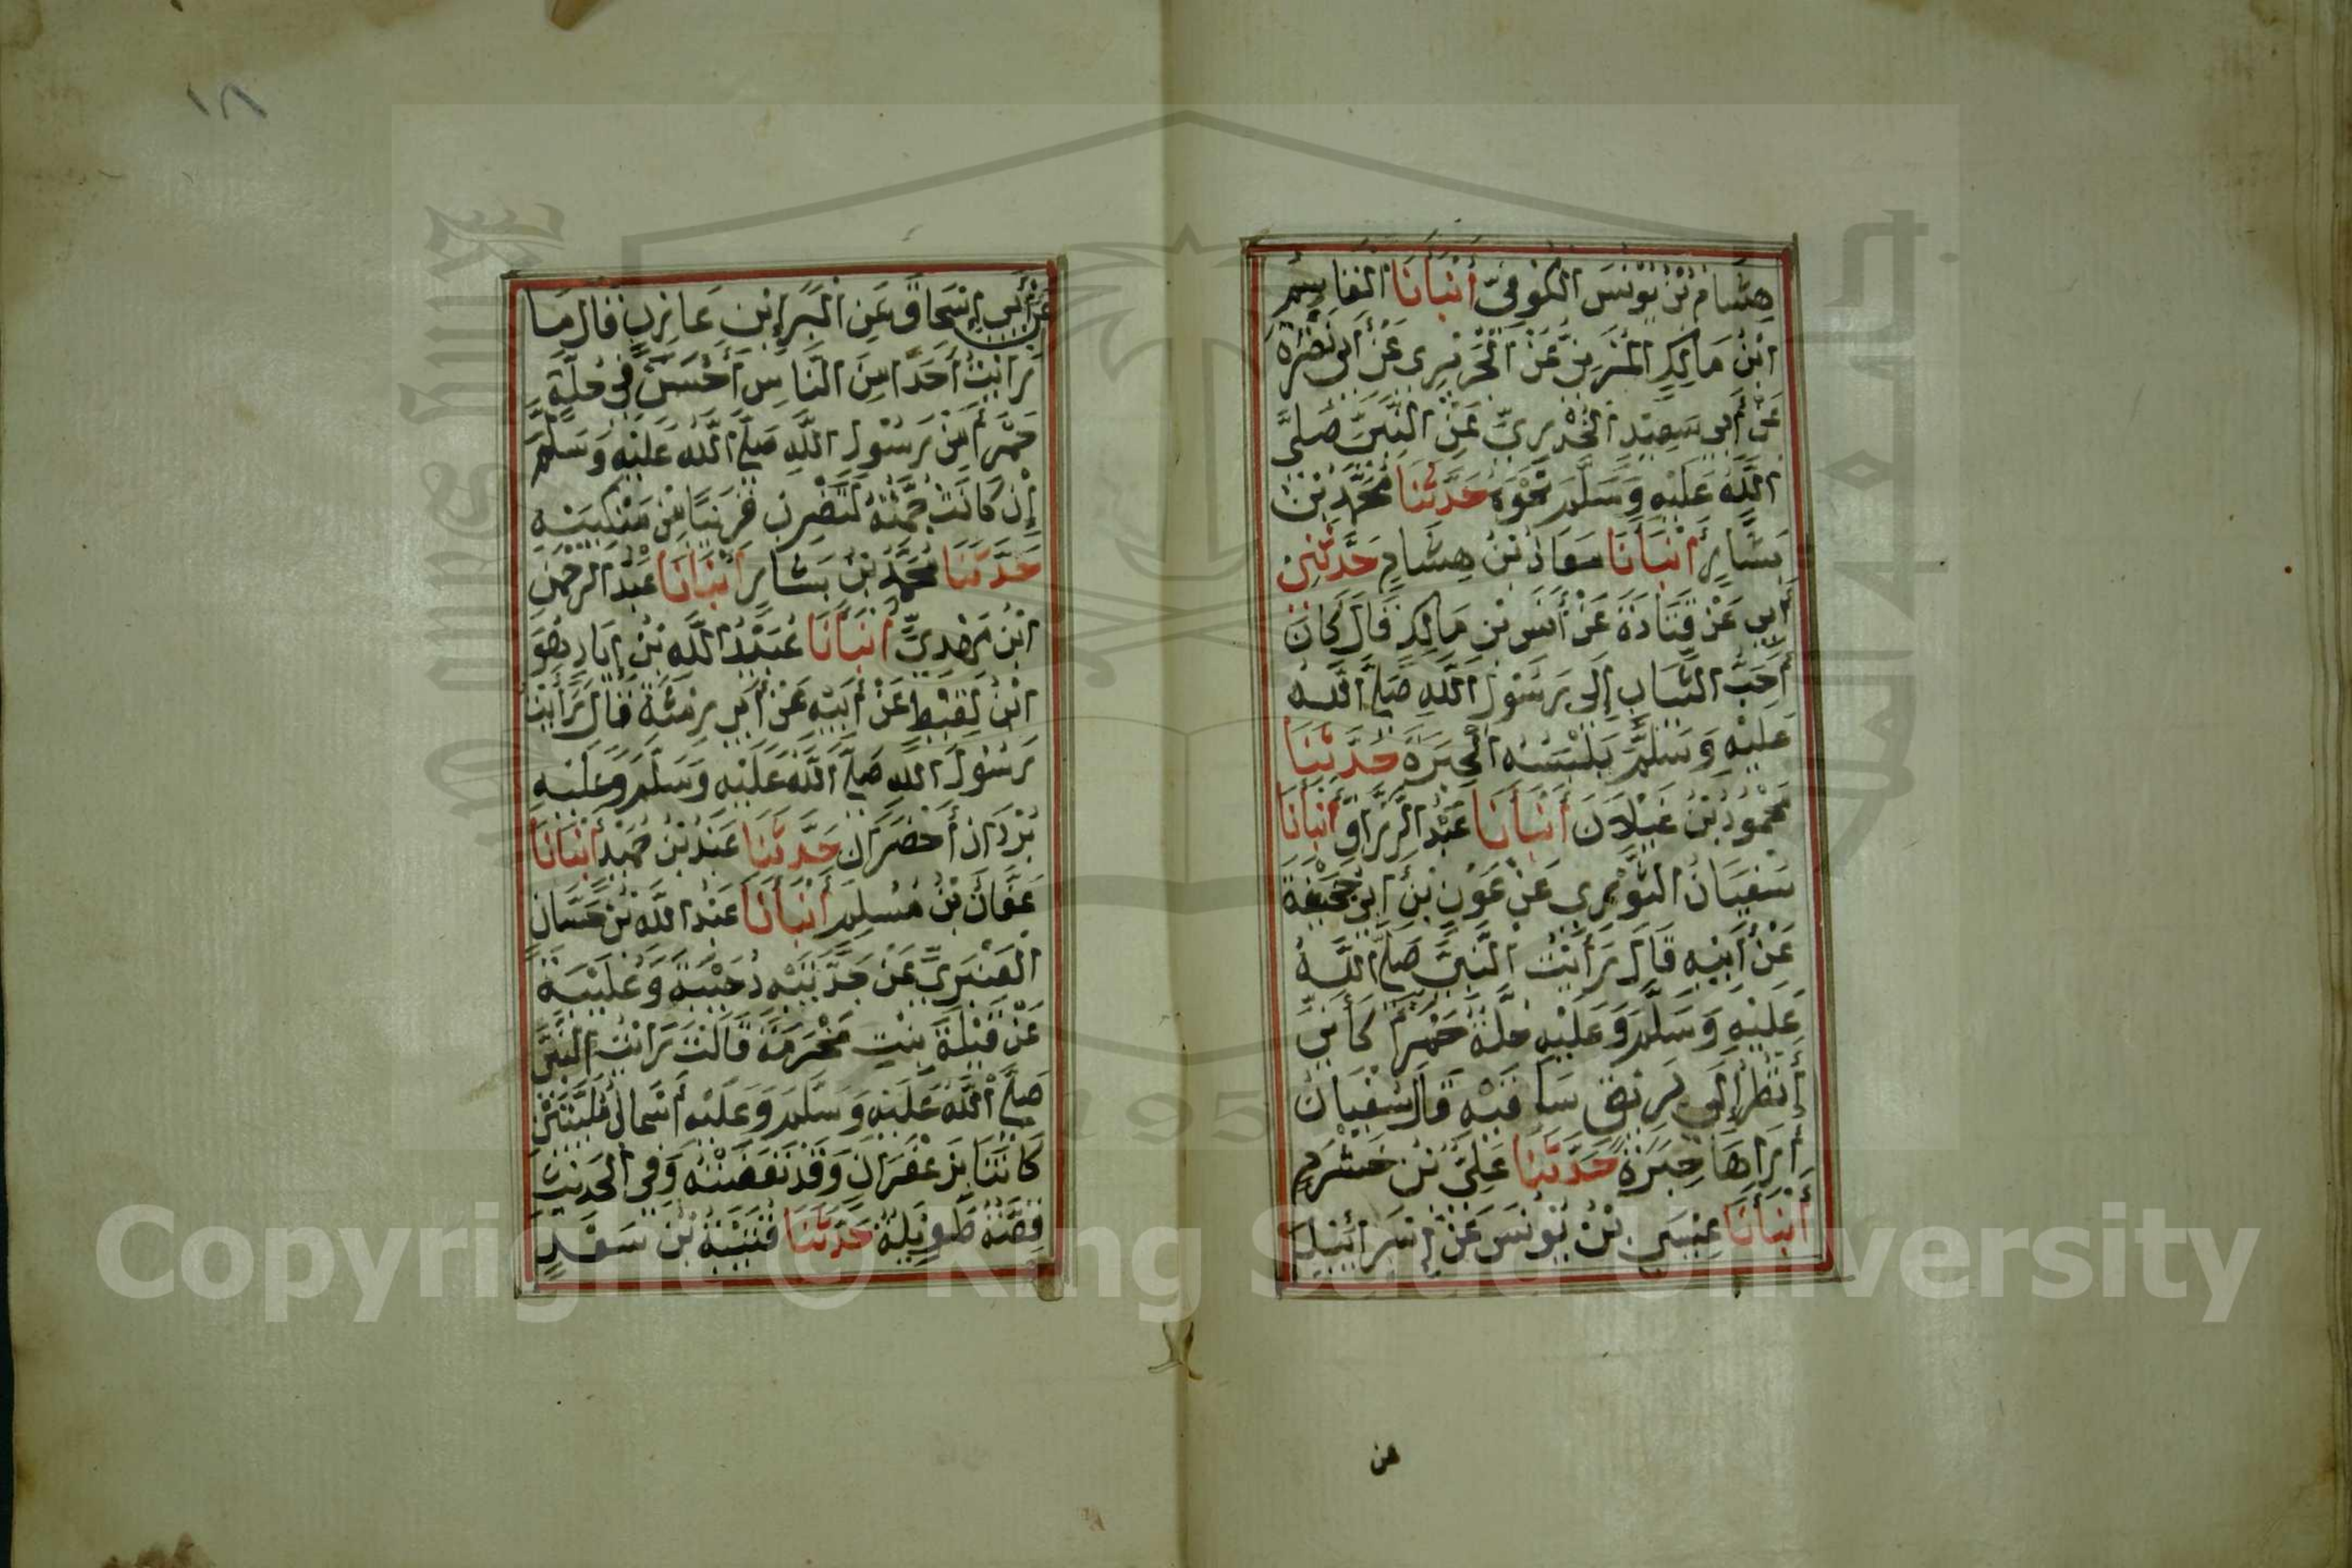 هِشَامُ بْنُ يُوْنُسَ الْكُوْفِيُّ أَنْبَأَنَا الْقَاسِمُ
ابْنُ مَالِكٍ الْمُزَنِيُّ عَنْ الْجُرَيْرِي عَنْ أَبِي نَضْرَةَ
عَنْ أَبِي سَعِيْدٍ الْخُدْرِيِّ عَنِ النَّبِيِّ صَلَّى
اللَّهُ عَلَيْهِ وَسَلَّمَ نَحْوَهُ حَدَّثَنَا مُحَمَّدُ بْنُ
بَشَّارٍ أَنْبَأَنَا مُعَاذُ بْنُ هِشَامٍ حَدَّثَنِيْ
أَبِي عَنْ قَتَادَةَ عَنْ أَنَسِ بْنِ مَالِكٍ قَالَ كَانَ
أَحَبُّ الثِّيَابِ إِلَى رَسُوْلِ اللَّهِ صَلَّى اللَّهُ
عَلَيْهِ وَسَلَّمَ يَلْبَسُهُ الْحِبَرَةُ حَدَّثَنَا
مَحْمُوْدُ بْنُ غَيْلَانَ أَنْبَأَنَا عَبْدُ الرَّزَّاقِ أَنْبَأَنَا
سُفْيَانُ الثَّوْرِي عَنْ عَوْنِ بْنِ أَبِي جُحَيْفَةَ
عَنْ أَبِيْهِ قَالَ رَأَيْتُ النَّبِيَّ صَلَّى اللَّهُ
عَلَيْهِ وَسَلَّمَ وَعَلَيْهِ حُلَّةٌ حَمْرَاءُ كَأَنِّي
أَنْظُرُ إِلَى بَرِيْقِ سَاقَيْهِ قَالَ سُفْيَانُ
أُرَاهَا حِبَرَةً حَدَّثَنَا عَلِيُّ بْنُ خَشْرَمٍ
أَنْبَأَنَا عِيْسَى بْنُ يُوْنُسَ عَنْ إِسْرَائِيْلَ
عن
١٨
عَنْ أَبِي إِسْحَاقَ عَنِ الْبَرَاءِ بْنِ عَازِبٍ قَالَ مَا
رَأَيْتُ أَحَدًا مِنَ النَّاسِ أَحْسَنَ فِي حُلَّةٍ
حَمْرَاءَ مِنْ رَسُوْلِ اللَّهِ صَلَّى اللَّهُ عَلَيْهِ وَسَلَّمَ
إِنْ كَانَتْ جُمَّتُهُ لَتَضْرِبُ قَرِيْبًا مِنْ مَنْكِبَيْهِ
حَدَّثَنَا مُحَمَّدُ بْنُ بَشَّارٍ أَنْبَأَنَا عَبْدُ الرَّحْمٰنِ
ابْنُ مَهْدِيٍّ أَنْبَأَنَا عُبَيْدُ اللَّهِ بْنُ إِيَادٍ وَهُوَ
ابْنُ لَقِيْطٍ عَنْ أَبِيْهِ عَنْ أَبِي رِمْثَةَ قَالَ رَأَيْتُ
رَسُوْلَ اللَّهِ صَلَّى اللَّهُ عَلَيْهِ وَسَلَّمَ وَعَلَيْهِ
بُرْدَانِ أَخْضَرَانِ حَدَّثَنَا عَبْدُ بْنُ حُمَيْدٍ أَنْبَأَنَا
عَفَّانُ بْنُ مُسْلِمٍ أَنْبَأَنَا عَبْدُ اللَّهِ بْنُ حَسَّانَ
الْعَنْبَرِيُّ عَنْ جَدَّتَيْهِ دُحَيْبَةَ وَعُلَيْبَةَ
عَنْ قَيْلَةَ بِنْتِ مَخْرَمَةَ قَالَتْ رَأَيْتُ النَّبِيَّ
صَلَّى اللَّهُ عَلَيْهِ وَسَلَّمَ وَعَلَيْهِ أَسْمَالُ مُلَيَّتَيْنِ
كَانَتَا بِزَعْفَرَانٍ وَقَدْ نَفَضَتْهُ وَفِي الْحَدِيْثِ
قِصَّةٌ طَوِيْلَةٌ حَدَّثَنَا قُتَيْبَةُ بْنُ سَعِيْدٍ
Copyright © King Saud University